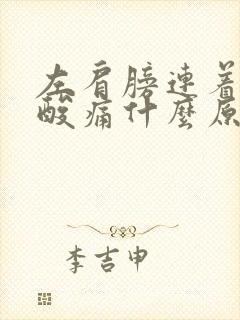 左肩膀连着
酸痛什麼原
李吉申